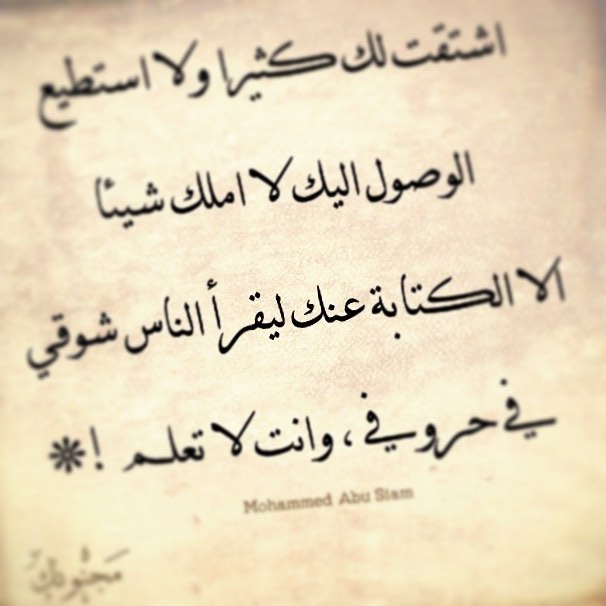 اشتقت لك كثيرا ولا استطيع
الوصول اليك لا املك شيئا
الا الكتابة عنك ليقرأ الناس شوقي
في حروفي ، وانت لا تعلم ! *
Mohammed Abu Siam